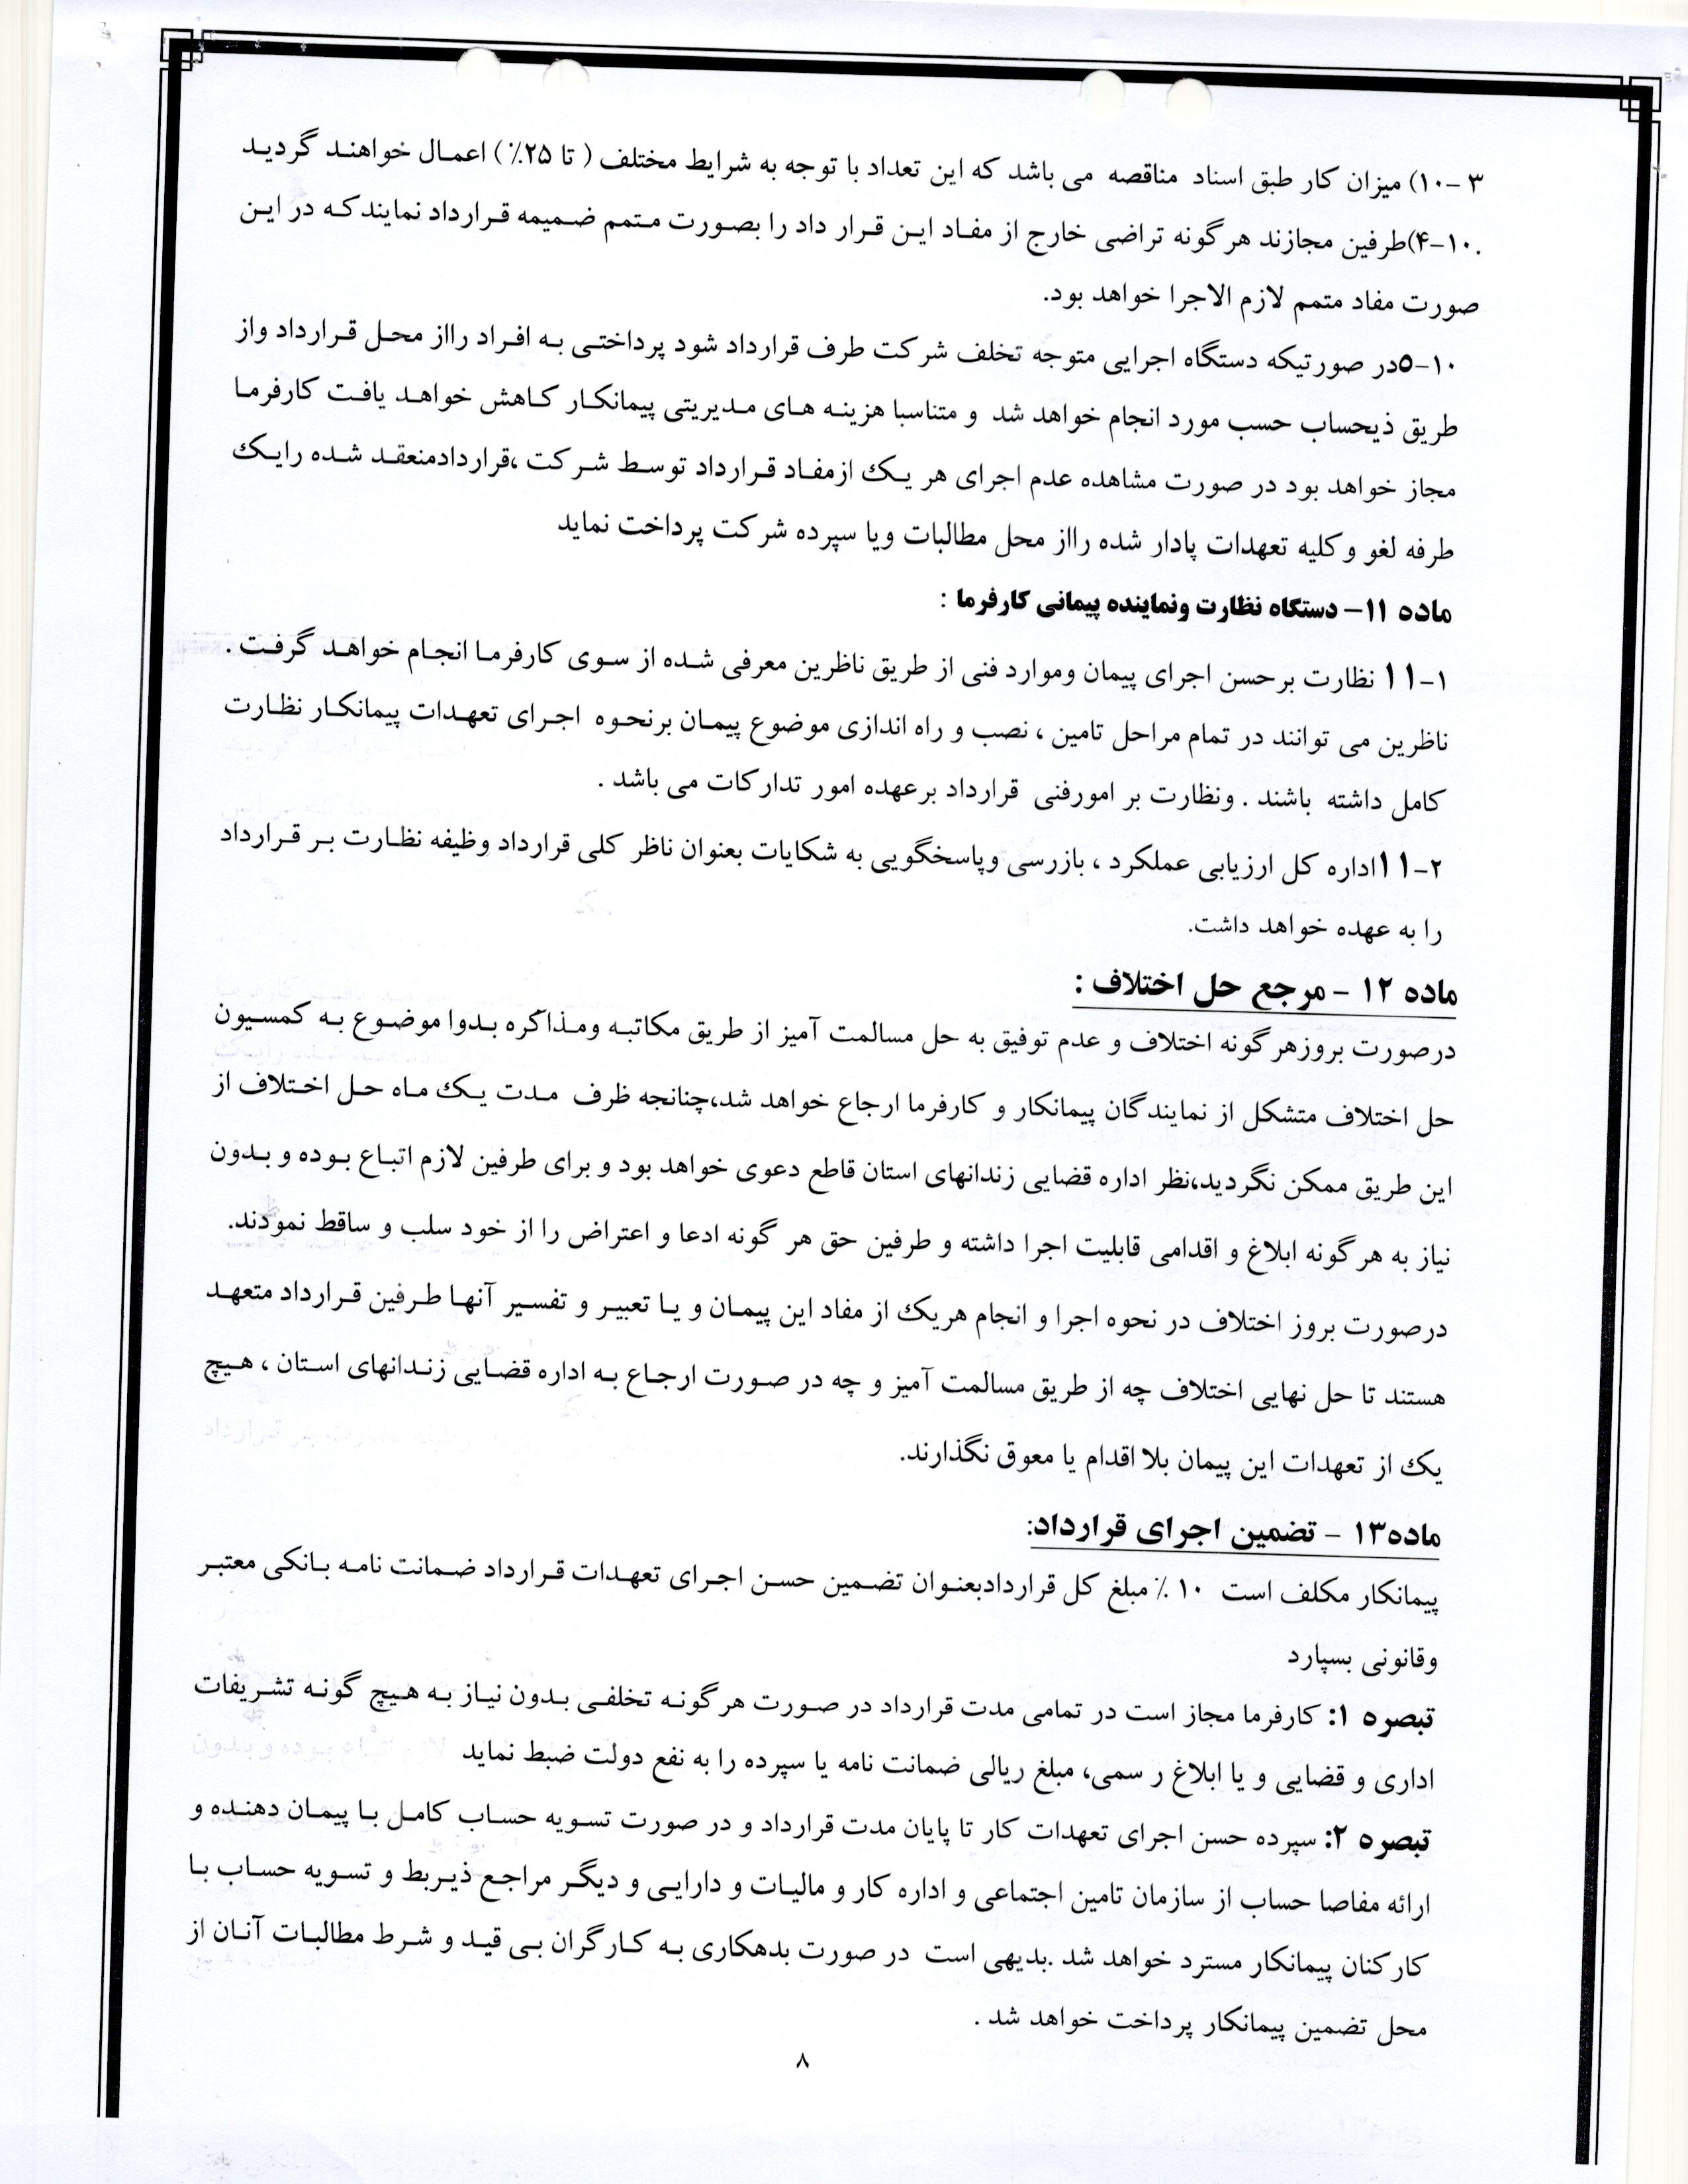 ۳ -۱۰) میزان کار طبق اسناد مناقصه می باشد که این تعداد با توجه به شرایط مختلف ( تا ۲۵٪) اعمال خواهند گردید
.۱۰-۴)طرفین مجازند هرگونه تراضی خارج از مفاد این قرار داد را بصورت متمم ضمیمه قرارداد نمایندکه در این
صورت مفاد متمم لازم الاجرا خواهد بود.
۱۰-۵در صورتیکه دستگاه اجرایی متوجه تخلف شرکت طرف قرارداد شود پرداختی به افراد رااز محل قرارداد واز
طریق ذیحساب حسب مورد انجام خواهد شد و متناسبا هزینه های مدیریتی پیمانکار کاهش خواهد یافت کارفرما
مجاز خواهد بود در صورت مشاهده عدم اجرای هر یک ازمفاد قرارداد توسط شرکت ،قراردادمنعقد شده رایک
طرفه لغو وکلیه تعهدات پادار شده رااز محل مطالبات ویا سپرده شرکت پرداخت نماید
ماده ۱۱- دستگاه نظارت ونماینده پیمانی کارفرما :
۱-۱۱ نظارت برحسن اجرای پیمان وموارد فنی از طریق ناظرین معرفی شده از سوی کارفرما انجام خواهد گرفت .
ناظرین می توانند در تمام مراحل تامین ، نصب و راه اندازی موضوع پیمان برنحوه اجرای تعهدات پیمانکار نظارت
کامل داشته باشند . ونظارت بر امورفنی قرارداد برعهده امور تدارکات می باشد .
۲-۱۱اداره کل ارزیابی عملکرد ، بازرسی وپاسخگویی به شکایات بعنوان ناظر کلی قرارداد وظیفه نظارت بر قرارداد
را به عهده خواهد داشت.
ماده ۱۲ - مرجع حل اختلاف :
درصورت بروزهرگونه اختلاف و عدم توفیق به حل مسالمت آمیز از طریق مکاتبه ومذاکره بدوا موضوع به کمسیون
حل اختلاف متشکل از نمایندگان پیمانکار و کارفرما ارجاع خواهد شد،چنانجه ظرف مدت یک ماه حل اختلاف از
این طریق ممکن نگردید،نظر اداره قضایی زندانهای استان قاطع دعوی خواهد بود و برای طرفین لازم اتباع بوده و بدون
نیاز به هرگونه ابلاغ و اقدامی قابلیت اجرا داشته و طرفین حق هر گونه ادعا و اعتراض را از خود سلب و ساقط نمودند.
درصورت بروز اختلاف در نحوه اجرا و انجام هریک از مفاد این پیمان و یا تعبیر و تفسیر آنها طرفین قرارداد متعهد
هستند تا حل نهایی اختلاف چه از طریق مسالمت آمیز و چه در صورت ارجاع به اداره قضایی زندانهای استان ، هیچ
یک از تعهدات این پیمان بلا اقدام یا معوق نگذارند.
ماده۱۳ - تضمین اجرای قرارداد:
پیمانکار مکلف است ۱۰ ٪ مبلغ کل قراردادبعنوان تضمین حسن اجرای تعهدات قرارداد ضمانت نامه بانکی معتبر
وقانونی بسپارد
تبصره ۱: کارفرما مجاز است در تمامی مدت قرارداد در صورت هرگونه تخلفی بدون نیاز به هیچ گونه تشریفات
اداری و قضایی و یا ابلاغ ر سمی، مبلغ ریالی ضمانت نامه یا سپرده را به نفع دولت ضبط نماید
تبصره ۲: سپرده حسن اجرای تعهدات کار تا پایان مدت قرارداد و در صورت تسویه حساب کامل با پیمان دهنده و
ارائه مفاصا حساب از سازمان تامین اجتماعی و اداره کار و مالیات و دارایی و دیگر مراجع ذیربط و تسویه حساب با
کارکنان پیمانکار مسترد خواهد شد .بدیهی است در صورت بدهکاری به کارگران بی قید و شرط مطالبات آنان از
محل تضمین پیمانکار پرداخت خواهد شد .
۸